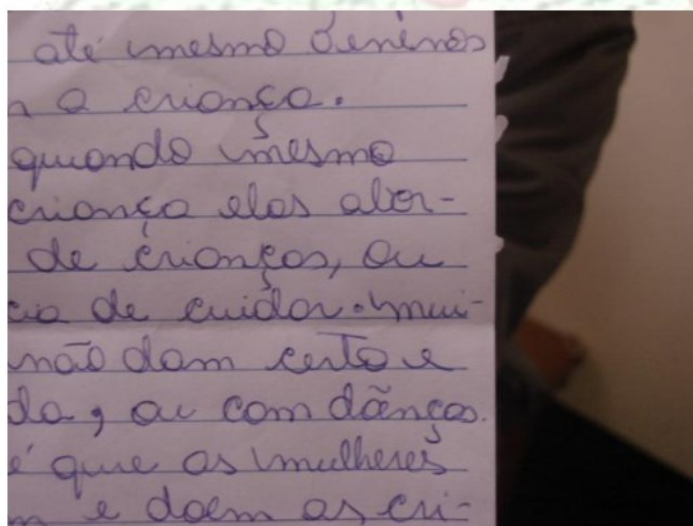 até mesmo venenos
a criança.
quando mesmo
criança elas abor-
de crianças, ou
cia de cuidar. mui-
não dam certo e
da, ou com dãnços.
é que as mulheres
m e doem as cri-